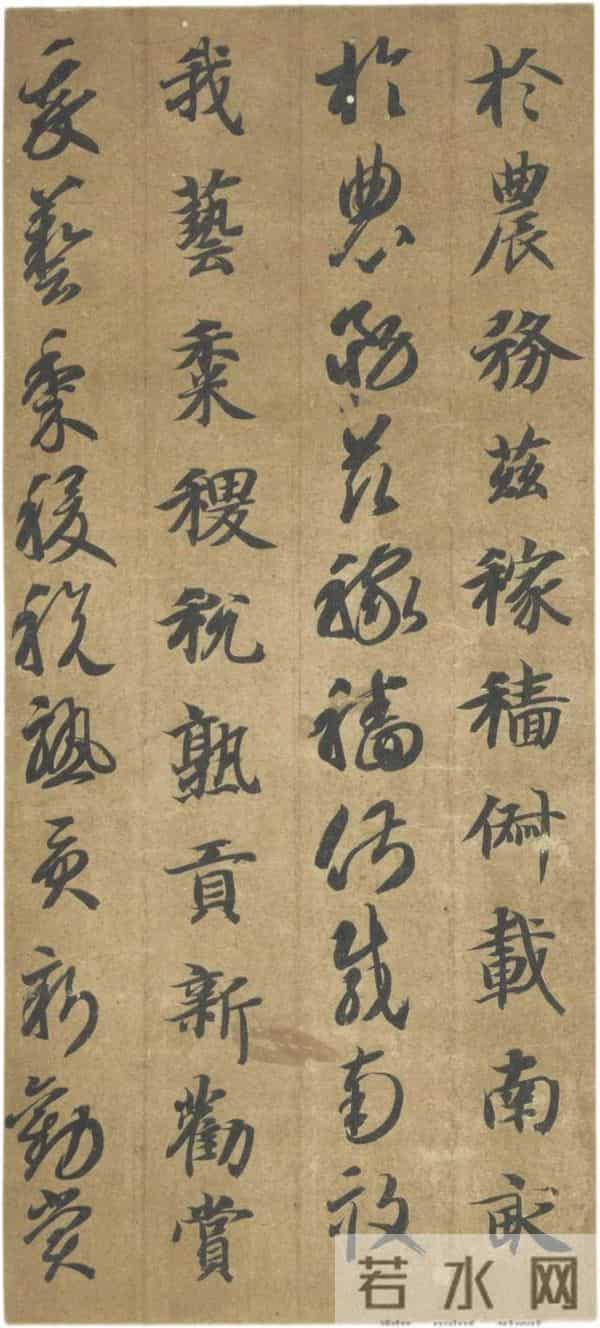 於農務茲稼穡俶載南畝
於農務茲稼穡俶載南畝
我藝黍稷稅熟貢新勸賞
我藝黍稷稅熟貢新勸賞
若水网